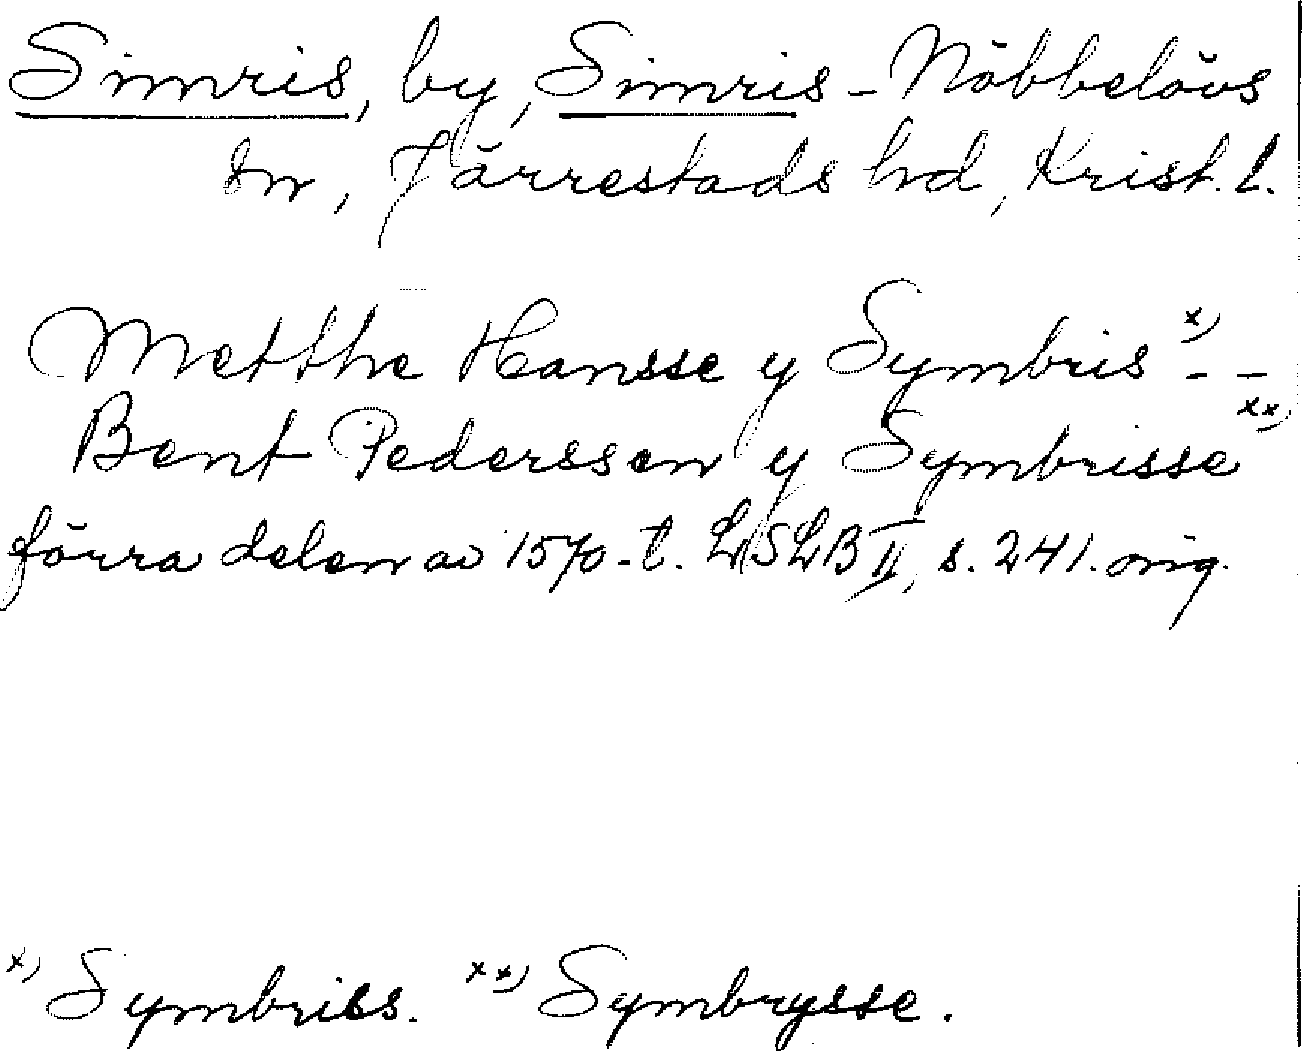 Simris, by, Simris-Nöbbelövs
sn, Järrestads hd, Krist. l.
Metthe Hansse y Symbris x) - -
Bent Pederssen y Symbrisse xx)
förra delen av 1570-t. LSLB II, s. 241. orig.
x) Symbriss. xx) Symbrysse.